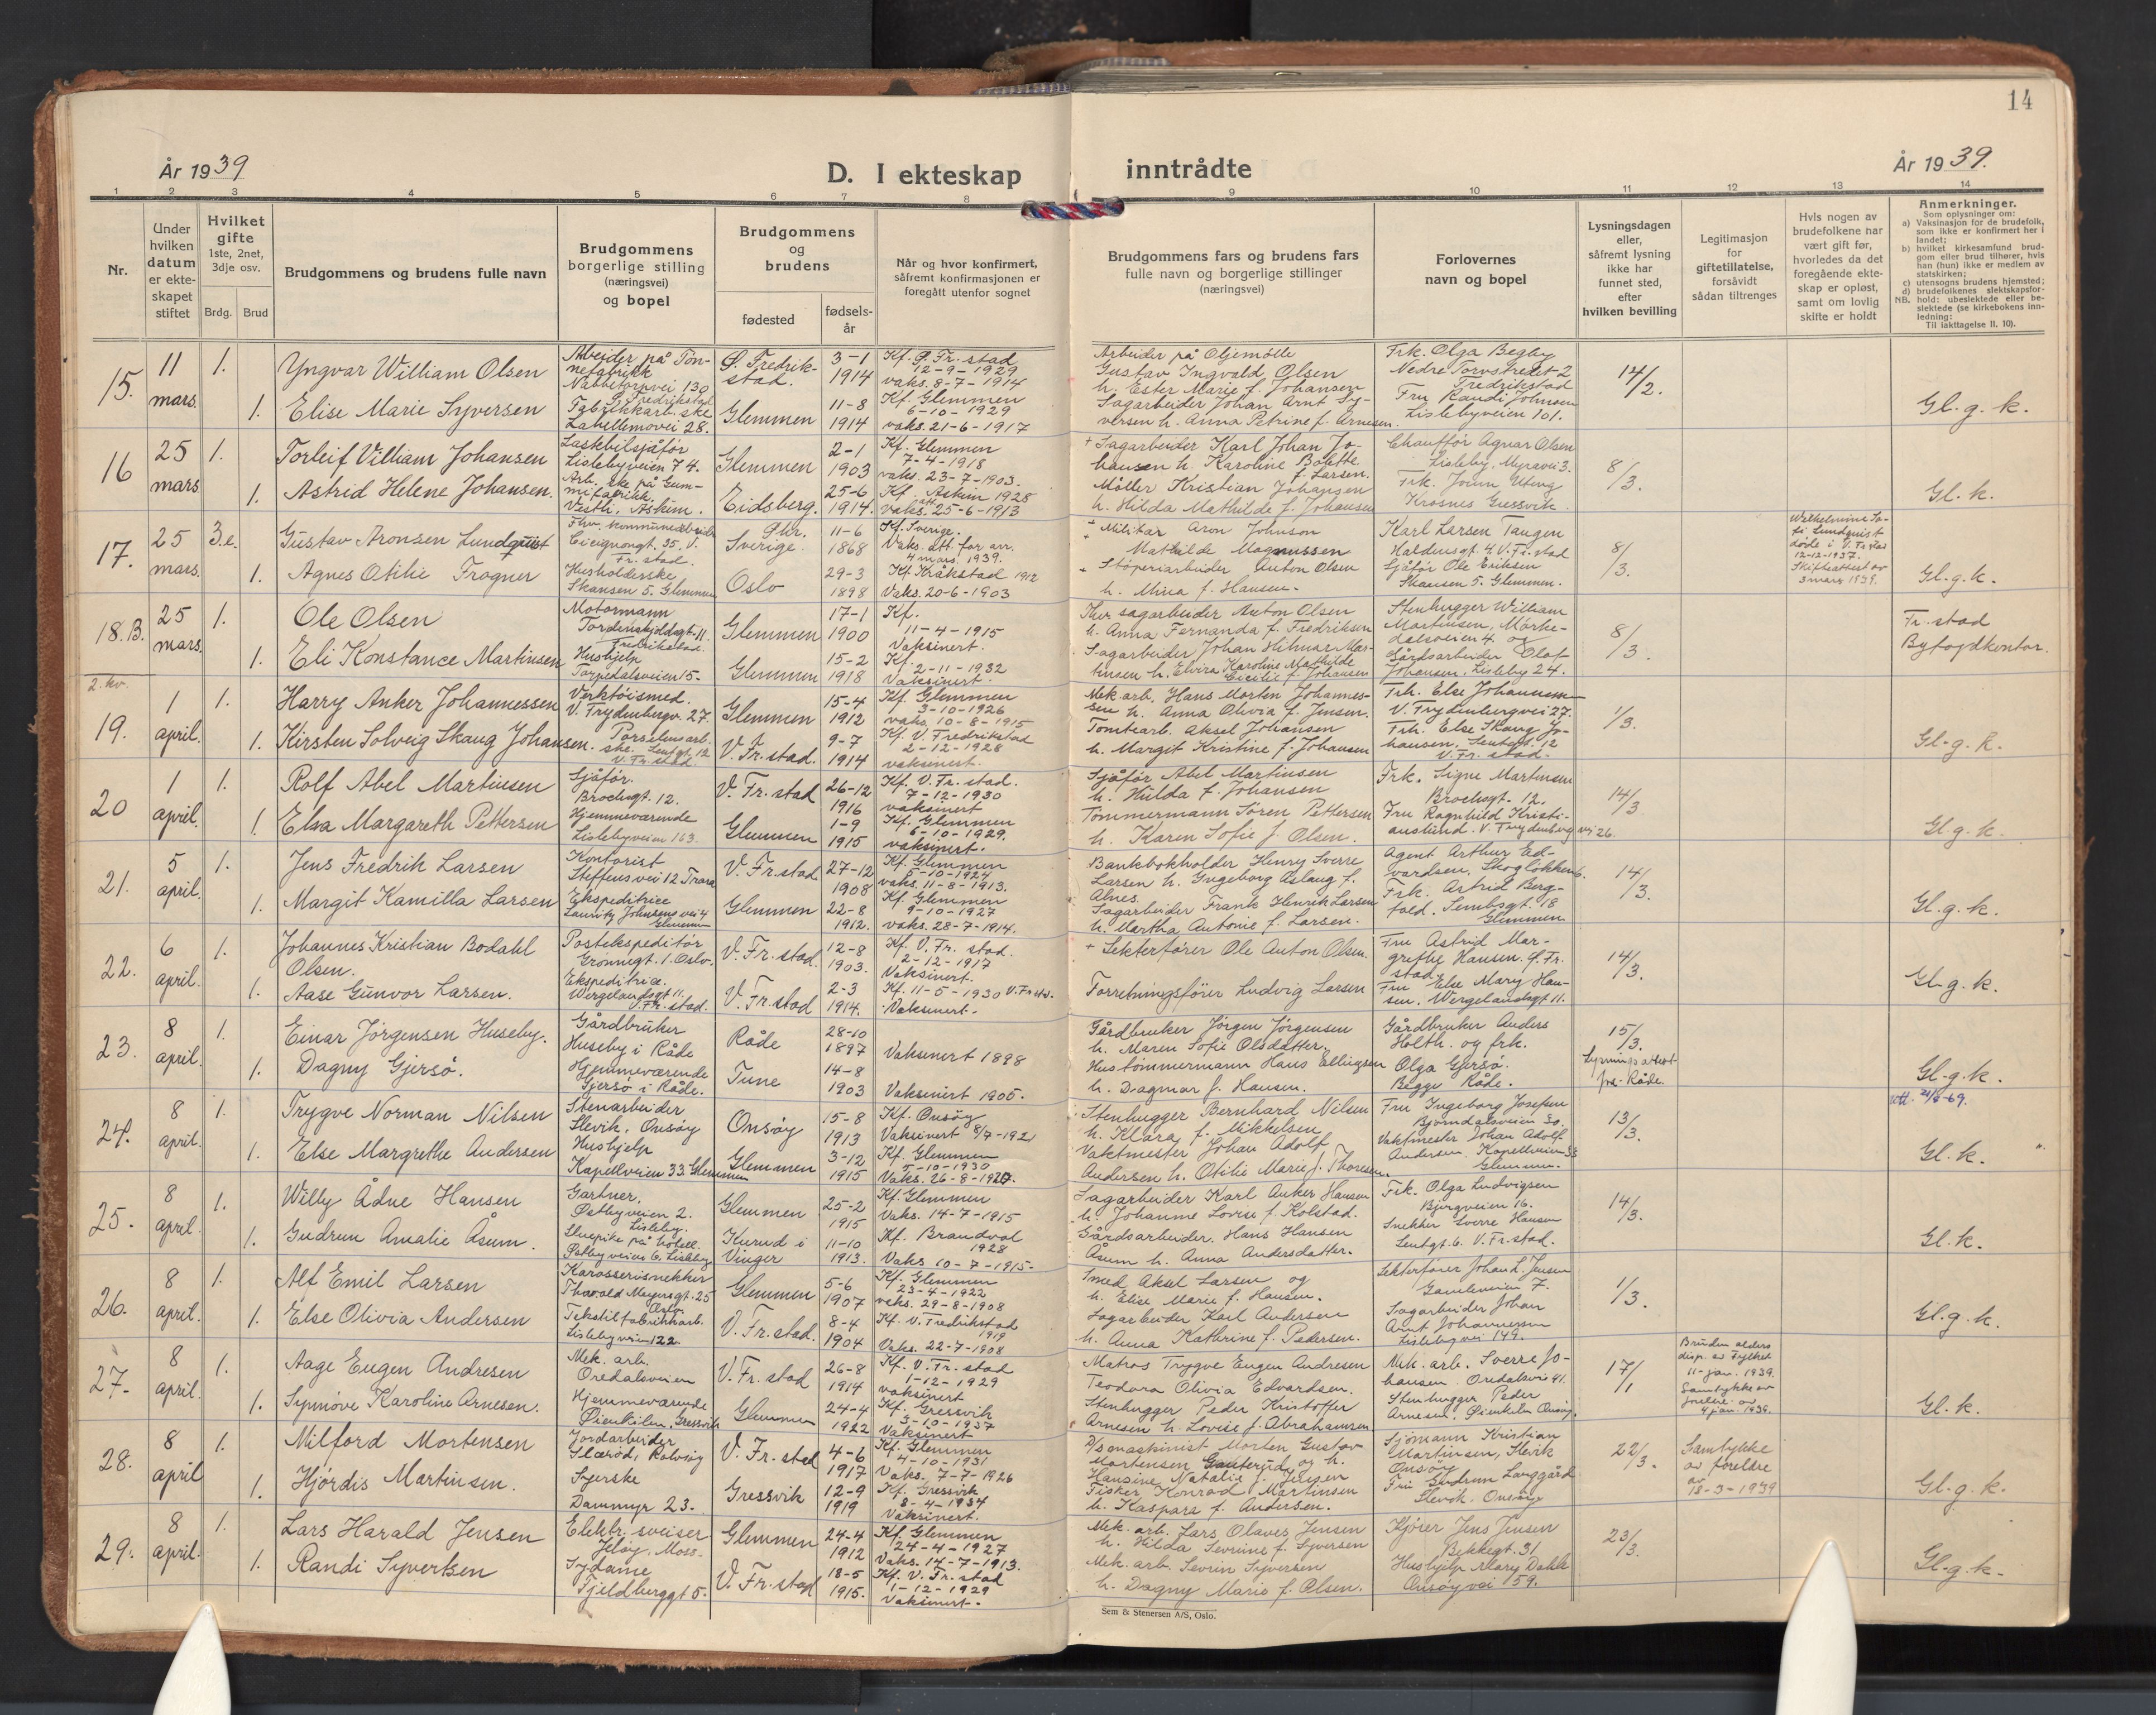 14
År 1939
D. I ekteskap
inntrådte
År 1939.
1 2 3 4 5 6 7 8 9 10 11 12 13 14
Nr.
Under hvilken datum er ekteskapet stiftet
Hvilket gifte
1ste, 2net, 3dje osv.
Brdg. Brud
Brudgommens og brudens fulle navn
Brudgommens borgerlige stilling (næringsvei) og bopel
Brudgommens og brudens
fødested
fødselsår
Når og hvor konfirmert, såfremt konfirmasjonen er foregått utenfor sognet
Brudgommens fars og brudens fars fulle navn og borgerlige stillinger (næringsvei)
Forlovernes navn og bopel
Lysningsdagen eller, såfremt lysning ikke har funnet sted, efter hvilken bevilling
Legitimasjon for giftetillatelse, forsåvidt sådan tiltrenges
Hvis nogen av brudefolkene har vært gift før, hvorledes da det foregående ekteskap er opløst, samt om lovlig skifte er holdt
Anmerkninger.
Som oplysninger om:
a) Vaksinasjon for de brudefolk, som ikke er konfirmert her i landet;
b) hvilket kirkesamfund brudgom eller brud tilhører, hvis han (hun) ikke er medlem av statskirken;
c) utensogns brudens hjemsted;
d) brudefolkenes slektskapsforhold: ubeslektede eller beslektede (se kirkebokens innledning:
NB. Til iakttagelse II. 10).
15. 11 mars. 1.
Yngvar William Olsen
Arbeider på Tønnefabrikk
Nabbetorpvei 130
Ø. Fredrikstad
Ø. Fredrikstad.
3-1 1914
Kf. Ø. Fr.stad
12-9-1929
vaks. 8-7-1914
Arbeider på Oljemølle
Gustav Ingvald Olsen
h. Ester Marie f. Johansen
Frk. Olga Begby
Nedre Torvstredet 2
Fredrikstad
14/2.
1. Elise Marie Syversen
Fabrikkarb.ske
28.
Glemmen
11-8 1914
Kf. Glemmen
6-10-1929
vaks. 21-6-1917
Sagarbeider Johan Arnt Syversen h. Anna Petrine f. Arnesen.
Fru Randi Johnsen
Lislebyveien 101.
Gl. g. k.
16 25 mars 1.
Torleif Villiam Johansen
Lastebilsjåfør
Lislebyveien 74.
Glemmen
2-1 1903
Kf. Glemmen
7-4-1918
vaks. 23-7-1903.
+ Sagarbeider Karl Johan Johansen h. Karoline Bolette f. Larsen.
Chauffør Agnar Olsen
Lisleby, Myravei 3.
8/3.
1. Astrid Helene Johansen.
Arb.ske på Gummifabrikk.
Vestli, Askim.
Eidsberg.
25-6 1914.
Kf. Askim 1928
vaks. 25-6-1913
Møller Kristian Johansen
h. Hilda Mathilde f. Johansen
Krosnes Gressvik.
Gl. k.
17. 25 mars. 3.e.
Gustav Aronsen Lundquist
Fhv. kommunearbeider
Cicignongt. 35. V. Fr.stad.
Sverige.
11-6 1868
Kf. Sverige.
Vaks. att. før arr.
4 mars 1939.
+ Militær Aron Johnson
Mathilde Magnussen
Karl Larsen Taugen
Haldensgt. 4. V. Fr.stad
8/3.
Wilhelmine Sofi Lundquist
døde i V. Fr.stad
12-12-1937.
Skifteattest av
3 mars 1939.
1. Agnes Otilie Frogner
Husholderske
Skansen 5. Glemmen
Oslo
29-3 1898
Kf. Kråkstad 1912
Vaks. 20-6-1903
+ Støperiarbeider Anton Olsen
h. Mina f. Hansen.
Sjåfør Ole Eriksen
Skansen 5. Glemmen.
Gl. g. k.
18.B. 25 mars. 1.
Ole Olsen
Motormann
Tordenskjoldsgt. 11.
Fredrikstad.
Glemmen
17-1 1900
Kf.
11-4-1915
Vaksinert.
Fhv sagarbeider Anton Olsen
h. Anna Fernanda f. Fredriksen
Stenhugger William
Martinsen, Mørkedalsveien 4. og
8/3.
Fr.stad
Byfogdkontor.
1. Eli Konstance Martinsen
Hushjelp
Torpedalsveien 15.
Glemmen
15-2 1918
Kf. 2-11-1932
Vaksinert.
Sagarbeider Johan Hilmar Martinsen h. Elvira Karoline Mathilde Cecilie f. Johansen
Gårdsarbeider Olof
Johansen, Lisleby 24.
2. kv.
19. 1 april. 1.
Harry Anker Johannessen
Verktøismed.
V. Frydenbergv. 27.
Glemmen
15-4 1912
Kf. Glemmen
3-10-1926
vaks. 10-8-1915
Mek. arb. Hans Morten Johannessen h. Anna Olivia f. Jensen.
Frk. Else Johannessen
V. Frydenbergvei 27.
1/3.
1. Kirsten Solveig Skaug Johansen.
Porselensarb.ske. Lentgt. 12
V. Fr.stad
V. Fr.stad.
9-7 1914
Kf. V. Fredrikstad
2-12-1928
vaksinert.
Tomtearb. Aksel Johansen
h. Margit Kristine f. Johansen
Frk. Else Skaug Johansen, Lentgt. 12
V. Fr.stad.
Gl. g. k.
20 1 april. 1.
Rolf Abel Martinsen
Sjåfør.
Brochsgt. 12.
V. Fr.stad
26-12 1916
Kf. V. Fr.stad.
7-12-1930
vaksinert
Sjåfør Abel Martinsen
h. Hulda f. Johansen
Frk. Signe Martinsen
Brochsgt. 12.
14/3
1. Elsa Margareth Pettersen
Hjemmeværende
Lislebyveien 163.
Glemmen
1-9 1915
Kf. Glemmen
6-10-1929.
vaksinert.
Tømmermann Søren Pettersen
h. Karen Sofie f. Olsen.
Fru Ragnhild Kristianslund. V. Frydenbergvei 26.
Gl. g. k.
21. 5 april. 1.
Jens Fredrik Larsen
Kontorist
Steffensvei 12 Trara
V. Fr.stad
27-12 1908
Kf. Glemmen
5-10-1924
vaks. 11-8-1913.
Bankbokholder Henry Sverre
Larsen h. Ingeborg Aslaug f.
Alnes.
Agent Arthur Edvardsen, Skogløkken 6.
14/3.
1. Margit Kamilla Larsen
Ekspeditrice
Lauritz Johnsens vei 4
Glemmen
Glemmen
22-8 1912.
Kf. Glemmen
9-10-1927
vaks. 28-7-1914.
Sagarbeider Frank Henrik Larsen
h. Martha Antonie f. Larsen.
Frk. Astrid Berg-
Sembsgt. 18
Glemmen
Gl. g. k.
22. 6 april. 1.
Johannes Kristian Bodahl
Olsen.
Postekspeditør
Grønnegt. 1. Oslo.
V. Fr.stad.
12-8 1903.
Kf. V. Fr. stad.
2-12-1917
Vaksinert.
+ Lekterfører Ole Anton Olsen.
Fru Astrid Margrethe Hansen. Ø. Fr.stad
14/3.
1. Aase Gunvor Larsen.
Ekspeditrice.
Wergelandsgt 11.
V. Fr. stad.
V. Fr.stad
2-3 1914.
Kf. 11-5-1930 V. Fr.std.
Vaksinert.
Forretningsfører Ludvig Larsen
Fru Else Mary Hansen. Wergelandsgt 11.
Gl. g. k.
23. 8 april. 1.
Einar Jørgensen Huseby.
Gårdbruker
Huseby i Råde
Råde
28-10 1897
Vaksinert 1898
Gårdbruker Jørgen Jørgensen
h. Maren Sofie Olsdatter.
Gårdbruker Anders
Holth. og frk.
15/3.
Lysningsattest
fra Råde.
1. Dagny Gjersø.
Hjemmeværende
Gjersø i Råde.
Tune
14-8 1903
Vaksinert 1905.
Hustømmermann Hans Ellingsen
h. Dagmar f. Hansen.
Olga Gjersø.
Begge Råde.
Gl. g. k.
24. 8 april. 1.
Trygve Norman Nilsen
Stenarbeider
Slevik, Onsøy
Onsøy
15-8 1913
Kf. Onsøy
Vaksinert 8/7-1921
Stenhugger Bernhard Nilsen
h. Klara f. Mikkelsen
Fru Ingeborg Josefsen
Bjørndalsveien 30.
13/3.
1. Else Margrethe Andersen
Hushjelp
Kapellveien 33. Glemmen
Glemmen
3-12 1915
Kf. Glemmen
5-10-1930
Vaks. 26-8-1920.
Vaktmester Johan Adolf
Andersen h. Otilie Marie f. Thoresen.
Vaktmester Johan Adolf
Andersen, Kapellveien 33
Glemmen.
Gl. k.
25. 8 april. 1.
Willy Ådne Hansen
Gartner.
Østbyveien 2.
Lisleby.
Glemmen
25-2 1915
Kf. Glemmen
Vaks. 14-7-1915
Sagarbeider Karl Anker Hansen
h. Johanne Lovise f. Kolstad.
Frk. Olga Ludvigsen
Bjergveien 16.
14/3.
1. Gudrun Amalie Åsum.
Stuepike på hotell.
Østbyveien 6. Lisleby
Kurud i Vinger
11-10 1913.
Kf. Brandvol
1928
Vaks 10-7-1915.
Gårdsarbeider. Hans Hansen
Åsum h. Anna Andersdatter.
Snekker Sverre Hansen
Lentgt. 6. V. Fr.stad.
Gl. k.
26. 8 april. 1.
Alf Emil Larsen
Karosserisnekker
Thorvald Meyersgt. 25
Oslo.
Glemmen
5-6 1907
Kf. Glemmen
23-4-1922
vaks. 29-8-1908
Smed Aksel Larsen og
h. Elise Marie f. Hansen.
Lekterfører Johan L. Jensen
Gamleveien 7.
1/3.
1. Else Olivia Andersen
Tekstilfabrikkarb.
Lislebyveien 122.
V. Fr.stad.
8-4 1904
Kf. V. Fredrikstad
1919
Vaks. 22-7-1908
Sagarbeider Karl Andersen
h. Anna Kathrine f. Pedersen.
Sagarbeider Johan
Arnt Johannessen
Lislebyvei 149.
Gl. g. k.
27. 8 april. 1.
Aage Eugen Andresen
Mek. arb.
Oredalsveien
V. Fr.stad
26-8 1914
Kf. V. Fr. stad
1-12-1929
vaksinert
Matros Trygve Eugen Andresen
Teodora Olivia Edvardsen.
Mek. arb. Sverre Johansen. Oredalsvei 41.
17/1
Bruden alders
disp. av Fylket
11-jan. 1939.
Samtykke av
foreldre av
4 jan. 1939.
1. Synnøve Karoline Arnesen.
Hjemmeværende
Øienkilen, Gressvik
Glemmen
24-4 1922
Kf. Gressvik
3-10-1937
Vaksinert
Stenhugger Peder Kristoffer
Arnesen h. Lovise f. Abrahamsen
Stenhugger Peder
Arnesen, Øienkilen Onsøy.
Gl. k.
28. 8 april 1.
Milford Mortensen
Jordarbeider
Rolvsøy
V. Fr. stad
4-6 1917
Kf. Glemmen
4-10-1931
Vaks. 7-7-1926
D/S maskinist Morten Gustav
Mortensen Gauterud og h.
Hansine Natalie f. Jensen
Sjømann Kristian
Martinsen, Slevik
Onsøy
22/3.
Samtykke
av foreldre
av
18-3-1939
1. Hjørdis Martinsen.
Syerske
Dammyr 23.
Gressvik
12-9 1919
Kf. Gressvik
8-4-1934
Vaksinert.
Fisker Konrad Martinsen
h. Kaspara f. Andersen.
Fru Gudrun Langgård
Slevik. Onsøy
Gl. g. k.
29. 8 april. 1.
Lars Harald Jensen
Elektr. sveiser
Jeløy, Moss.
Glemmen
24-4 1912
Kf. Glemmen
24-4-1927
Vaks. 14-7-1913.
Mek. arb. Lars Olaves Jensen
h. Hilda Sevrine f. Syversen
Kjører Jens Jensen
Bekkegt. 31
23/3.
1. Randi Syvertsen
Sydame
Fjeldberggt 5.
V. Fr.stad
18-5 1915.
Kf. V. Fr. stad
1-12-1929
Vaksinert.
Mek. arb. Sevrin Syversen
h. Dagny Marie f. Olsen.
Hushjelp Mary Dahle
Onsøyvei 59.
Gl. g. k.
Sem & Stenersen A/S, Oslo.